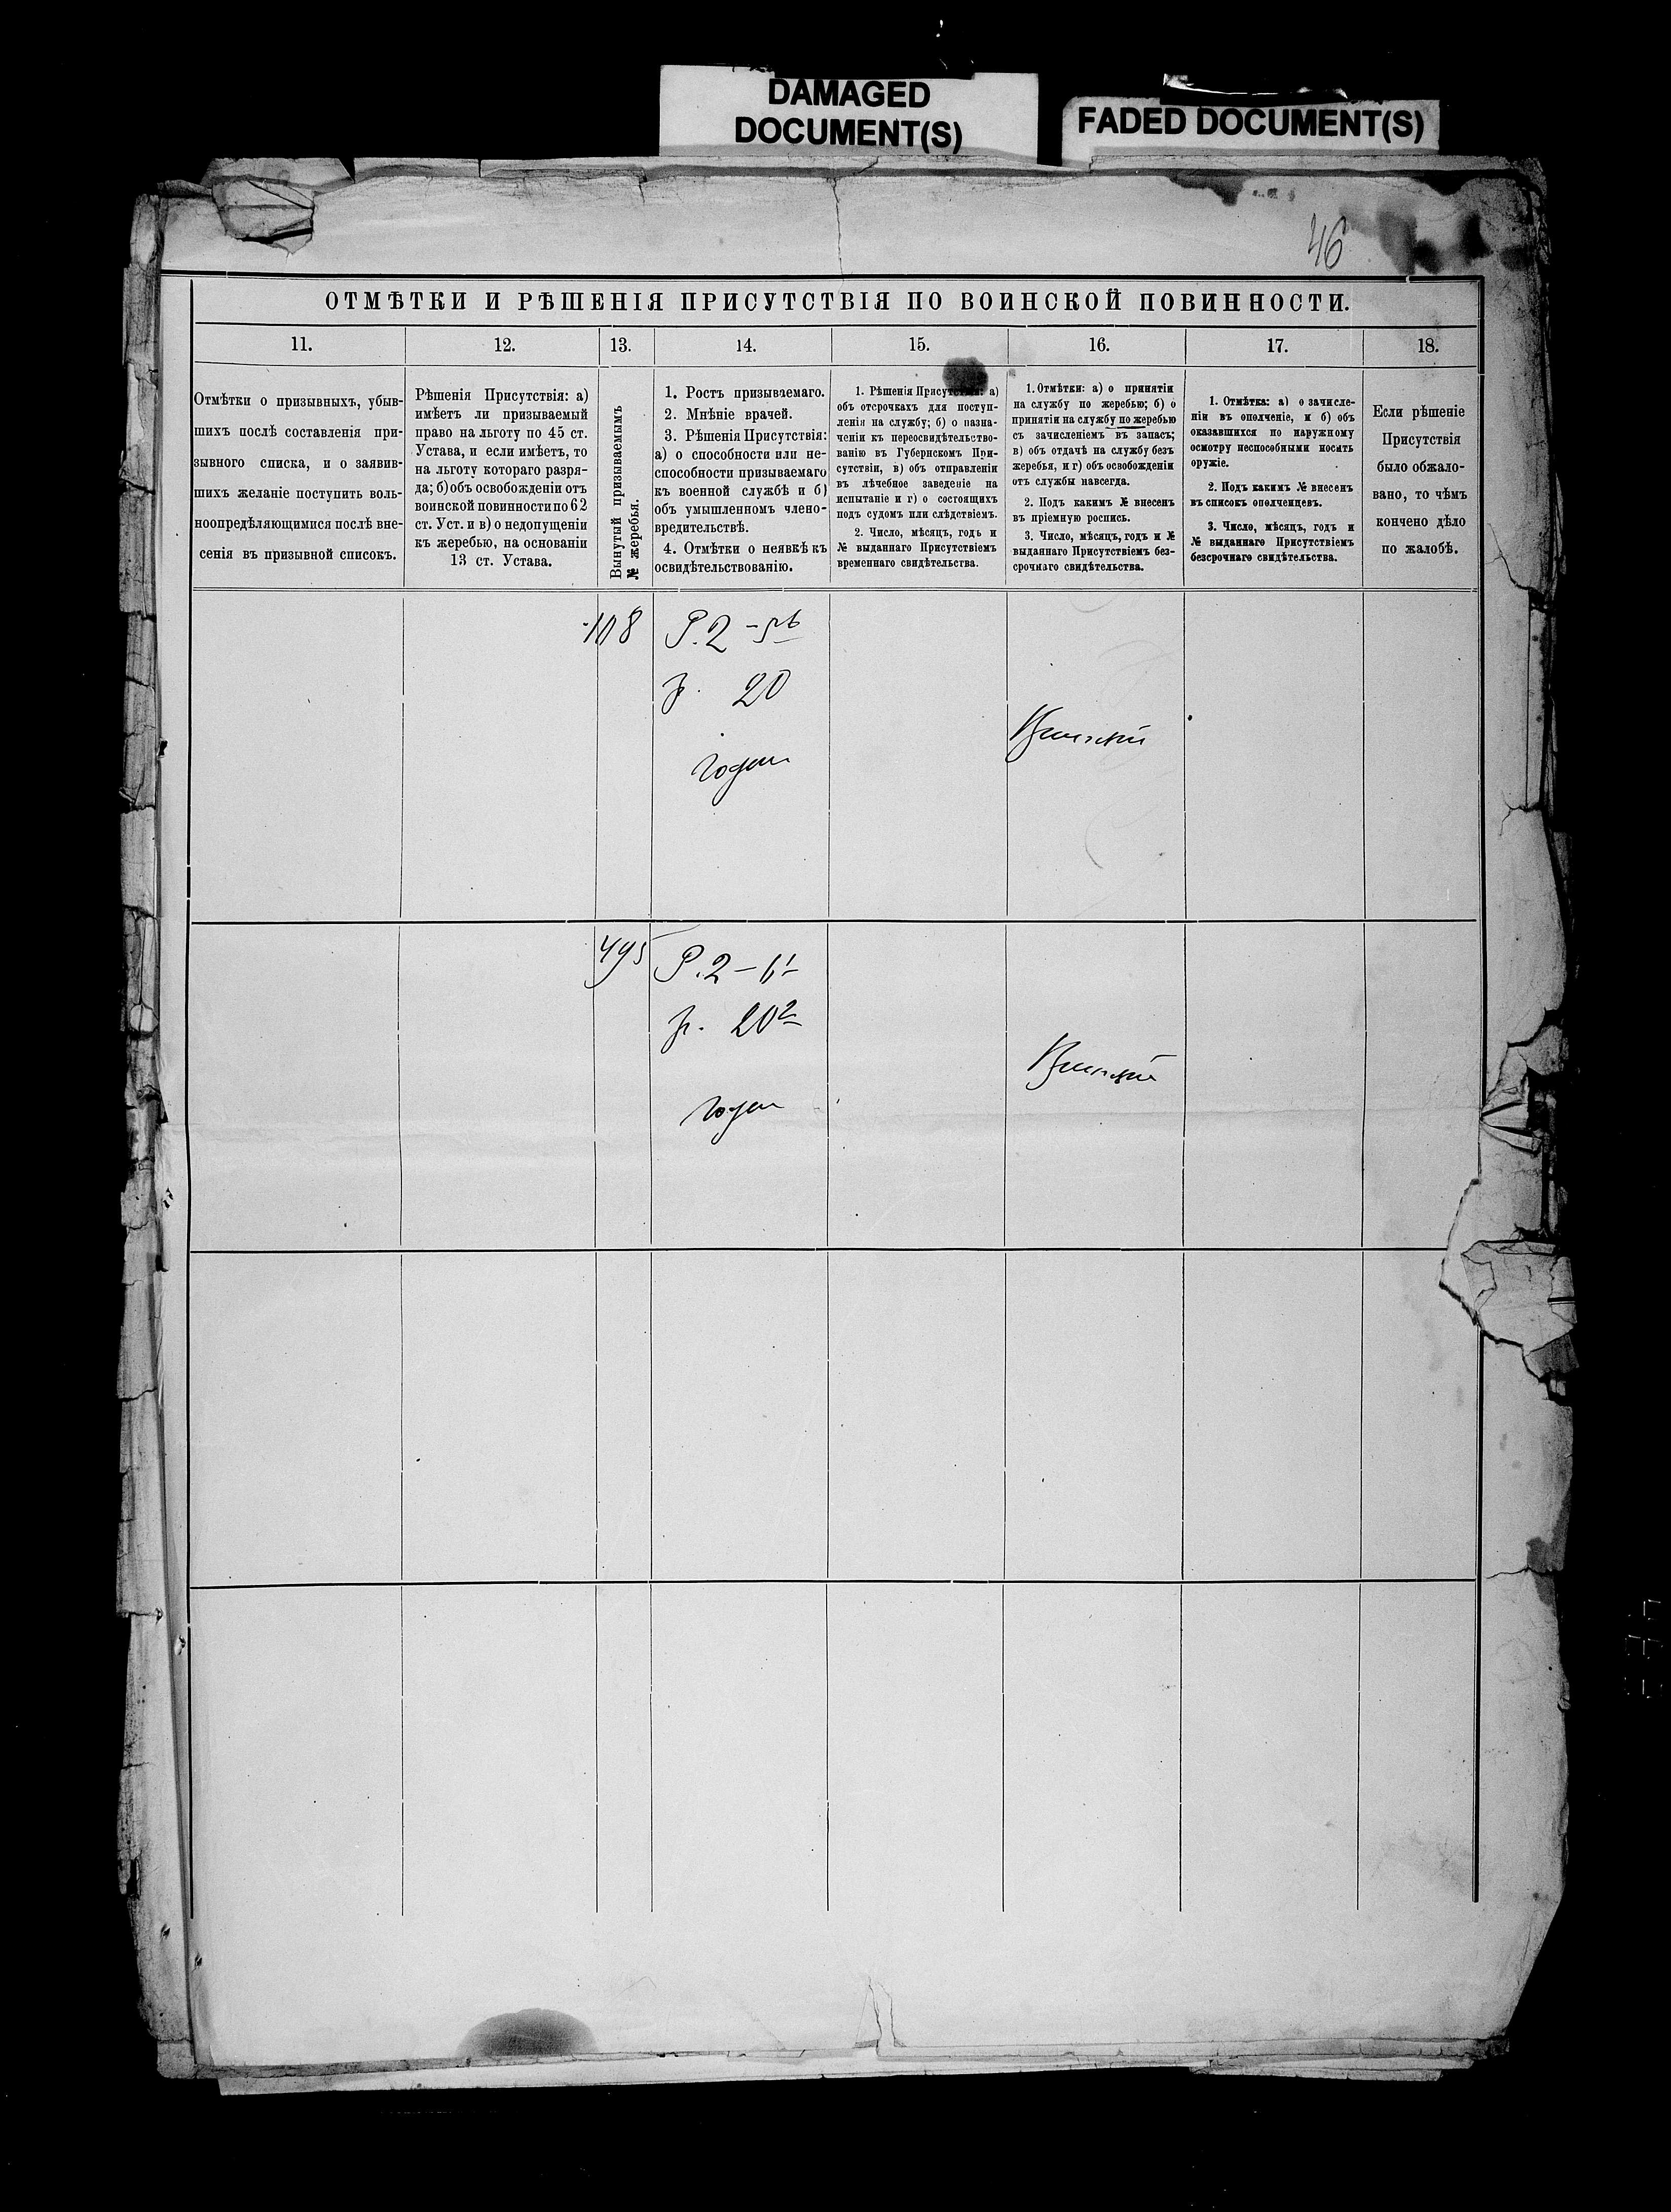 DAMAGED
DOCUMENT(S)
FADED DOCUMENT(S)
46
ОТМѢТКИ И РѢШЕНІЯ ПРИСУТСТВІЯ ПО ВОИНСКОЙ ПОВИННОСТИ.
11.
12.
13.
14.
15.
16.
17.
18.
Отмѣтки о призывныхъ, убыв-
шихъ послѣ составленія при-
зывного списка, и о заявив-
шихъ желаніе поступить воль-
ноопредѣляющимися послѣ вне-
сенія въ призывной списокъ.
Рѣшенія Присутствія: а)
имѣетъ ли призываемый
право на льготу по 45 ст.
Устава, и если имѣетъ, то
на льготу котораго разря-
да; б) объ освобожденіи отъ
воинской повинности по 62
ст. Уст. и в) о недопущеніи
къ жеребью, на основаніи
13 ст. Устава.
Вынутый призываемымъ
№ жеребья.
1. Ростъ призываемаго.
2. Мнѣніе врачей.
3. Рѣшенія Присутствія:
а) о способности или не-
способности призываемаго
къ военной службѣ и б)
объ умышленномъ члено-
вредительствѣ.
4. Отмѣтки о неявкѣ къ
освидѣтельствованію.
1. Рѣшенія Присутствія: а)
объ отсрочкахъ для поступ-
ленія на службу; б) о назна-
ченіи къ переосвидѣтельство-
ванію въ Губернскомъ При-
сутствіи, в) объ отправленіи
въ лѣчебное заведеніе на
испытаніе и г) о состоящихъ
подъ судомъ или слѣдствіемъ.
2. Число, мѣсяцъ, годъ и
№ выданнаго Присутствіемъ
временнаго свидѣтельства.
1. Отмѣтки: а) о принятіи
на службу по жеребью; б) о
принятіи на службу по жеребью
съ зачисленіемъ въ запасъ;
в) объ отдачѣ на службу безъ
жеребья, и г) объ освобожденіи
отъ службы навсегда.
2. Подъ какимъ № внесенъ
въ пріемную роспись.
3. Число, мѣсяцъ, годъ и №
выданнаго Присутствіемъ без-
срочнаго свидѣтельства.
1. Отмѣтка: а) о зачисле-
ніи въ ополченіе, и б) объ
оказавшихся по наружному
осмотру неспособными носить
оружіе.
2. Подъ какимъ № внесенъ
въ списокъ ополченцевъ.
3. Число, мѣсяцъ, годъ и
№ выданнаго Присутствіемъ
безсрочнаго свидѣтельства.
Если рѣшеніе
Присутствія
было обжало-
вано, то чѣмъ
кончено дѣло
по жалобѣ.
108
Р. 2 – 5 6
г. 20
годен
495
Р. 2 – 6 1
г. 20 2
годен